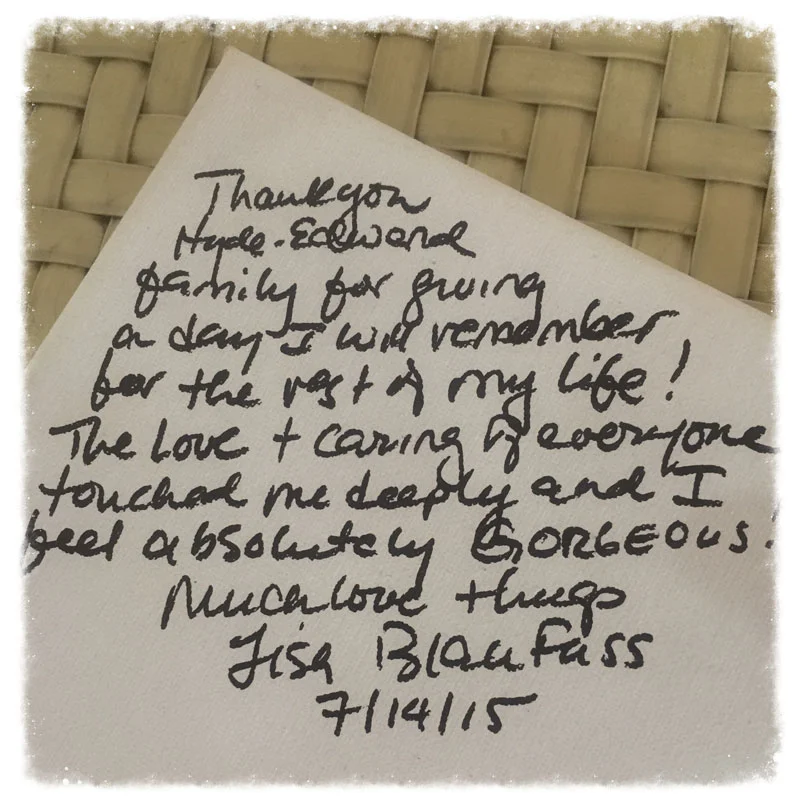 Thankyou
Hyde-Edward
family for giving
a day I will remember
for the rest of my life!
The Love + caring of everyone
touched me deeply and I
feel absolutely GORGEOUS.
Much love + hugs
Lisa Blaufass
7/14/15